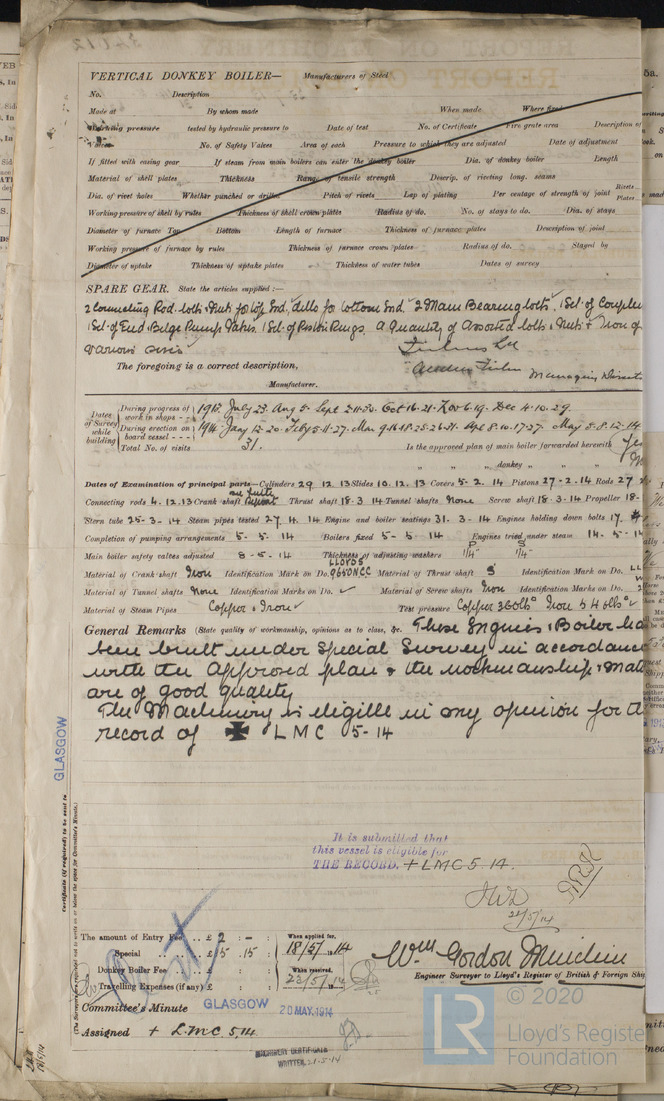 VERTICAL DONKEY BOILER— Manufacturers of Steel
No. Description
Made at By whom made When made Where fixed
Working pressure tested by hydraulic pressure to Date of test No. of Certificate Fire grate area Description of
Valves No. of Safety Valves Area of each Pressure to which they are adjusted Date of adjustment
If fitted with easing gear If steam from main boilers can enter the donkey boiler Dia. of donkey boiler Length
Material of shell plates Thickness Range of tensile strength Descrip. of riveting long. seams
Dia. of rivet holes Whether punched or drilled Pitch of rivets Lap of plating Per centage of strength of joint Rivets Plates
Working pressure of shell by rules Thickness of shell crown plates Radius of do. No. of stays to do. Dia. of stays
Diameter of furnace Top Bottom Length of furnace Thickness of furnace plates Description of joint
Working pressure of furnace by rules Thickness of furnace crown plates Radius of do. Stayed by
Diameter of uptake Thickness of uptake plates Thickness of water tubes Dates of survey
SPARE GEAR. State the articles supplied:—
2 Connecting Rod bolts & Nuts for top End, ditto for bottom End, 2 Main Bearing bolts, 1 Set of
1 Set of Feed & Bilge Pump Valves. 1 Set of Piston Rings. a Quantity of assorted bolts & Nuts & Iron of
various sizes
The foregoing is a correct description,
Managing
Manufacturer.
Dates of Survey while building
During progress of work in shops - - 1913. July 23. Aug 5. Sept 2. Oct 16. 21. Nov 6. 19. Dec 4. 10. 29.
During erection on board vessel - - - 1914. Jany 12. 20. Feby 5. 11. 27. Mar 9. 16. 18. 25. 26. 31. Apl 8. 10. 17. 27. May 5. 8. 12. 14
Total No. of visits 31. Is the approved plan of main boiler forwarded herewith Yes
" " " donkey " "
Dates of Examination of principal parts—Cylinders 29. 12. 13 Slides 10. 12. 13 Covers 5. 2. 14 Pistons 27. 2. 14 Rods 27
Connecting rods 4. 12. 13 Crank shaft Thrust shaft 18. 3. 14 Tunnel shafts None Screw shaft 18. 3. 14 Propeller 18.
Stern tube 25. 3. 14 Steam pipes tested 27. 4. 14 Engine and boiler seatings 31. 3. 14 Engines holding down bolts 17.
Completion of pumping arrangements 5. 5. 14 Boilers fixed 5. 5. 14 Engines tried under steam 14. 5. 14
Main boiler safety valves adjusted 8. 5. 14 Thickness of adjusting washers P 1/4" S 1/4"
Material of Crank shaft Iron Identification Mark on Do. LLOYDS 9650NCC Material of Thrust shaft S Identification Mark on Do.
Material of Tunnel shafts None Identification Marks on Do. ✓ Material of Screw shafts Iron Identification Marks on Do.
Material of Steam Pipes Copper & Iron ✓ Test pressure Copper 360 lbs Iron 540 lbs ✓
General Remarks (State quality of workmanship, opinions as to class, &c. These Engines & Boiler ha
been built under Special Survey in accordance
with the approved plan & the workmanship & mat
are of good quality
The Machinery is eligible in my opinion for a
record of ✠ LMC 5-14
GLASGOW
Certificate (if required) to be sent to
(The Surveyors are requested not to write on or below the space for Committee's Minute.)
It is submitted that
this vessel is eligible for
THE RECORD. + LMC 5. 14.
22/5/14
The amount of Entry Fee .. £ 2 : - : When applied for,
Special .. £ 15 . 15 : 18/5/14
Donkey Boiler Fee .. £ When received,
Travelling Expenses (if any) £ 23/5/14
Wm Gordon
Engineer Surveyor to Lloyd's Register of British & Foreign Ship
Committee's Minute GLASGOW 20 MAY. 1914
Assigned + L.M.C. 5,14
MACHINERY CERTIFICATE
WRITTEN
© 2020
LR
Lloyd's Registe
Foundation